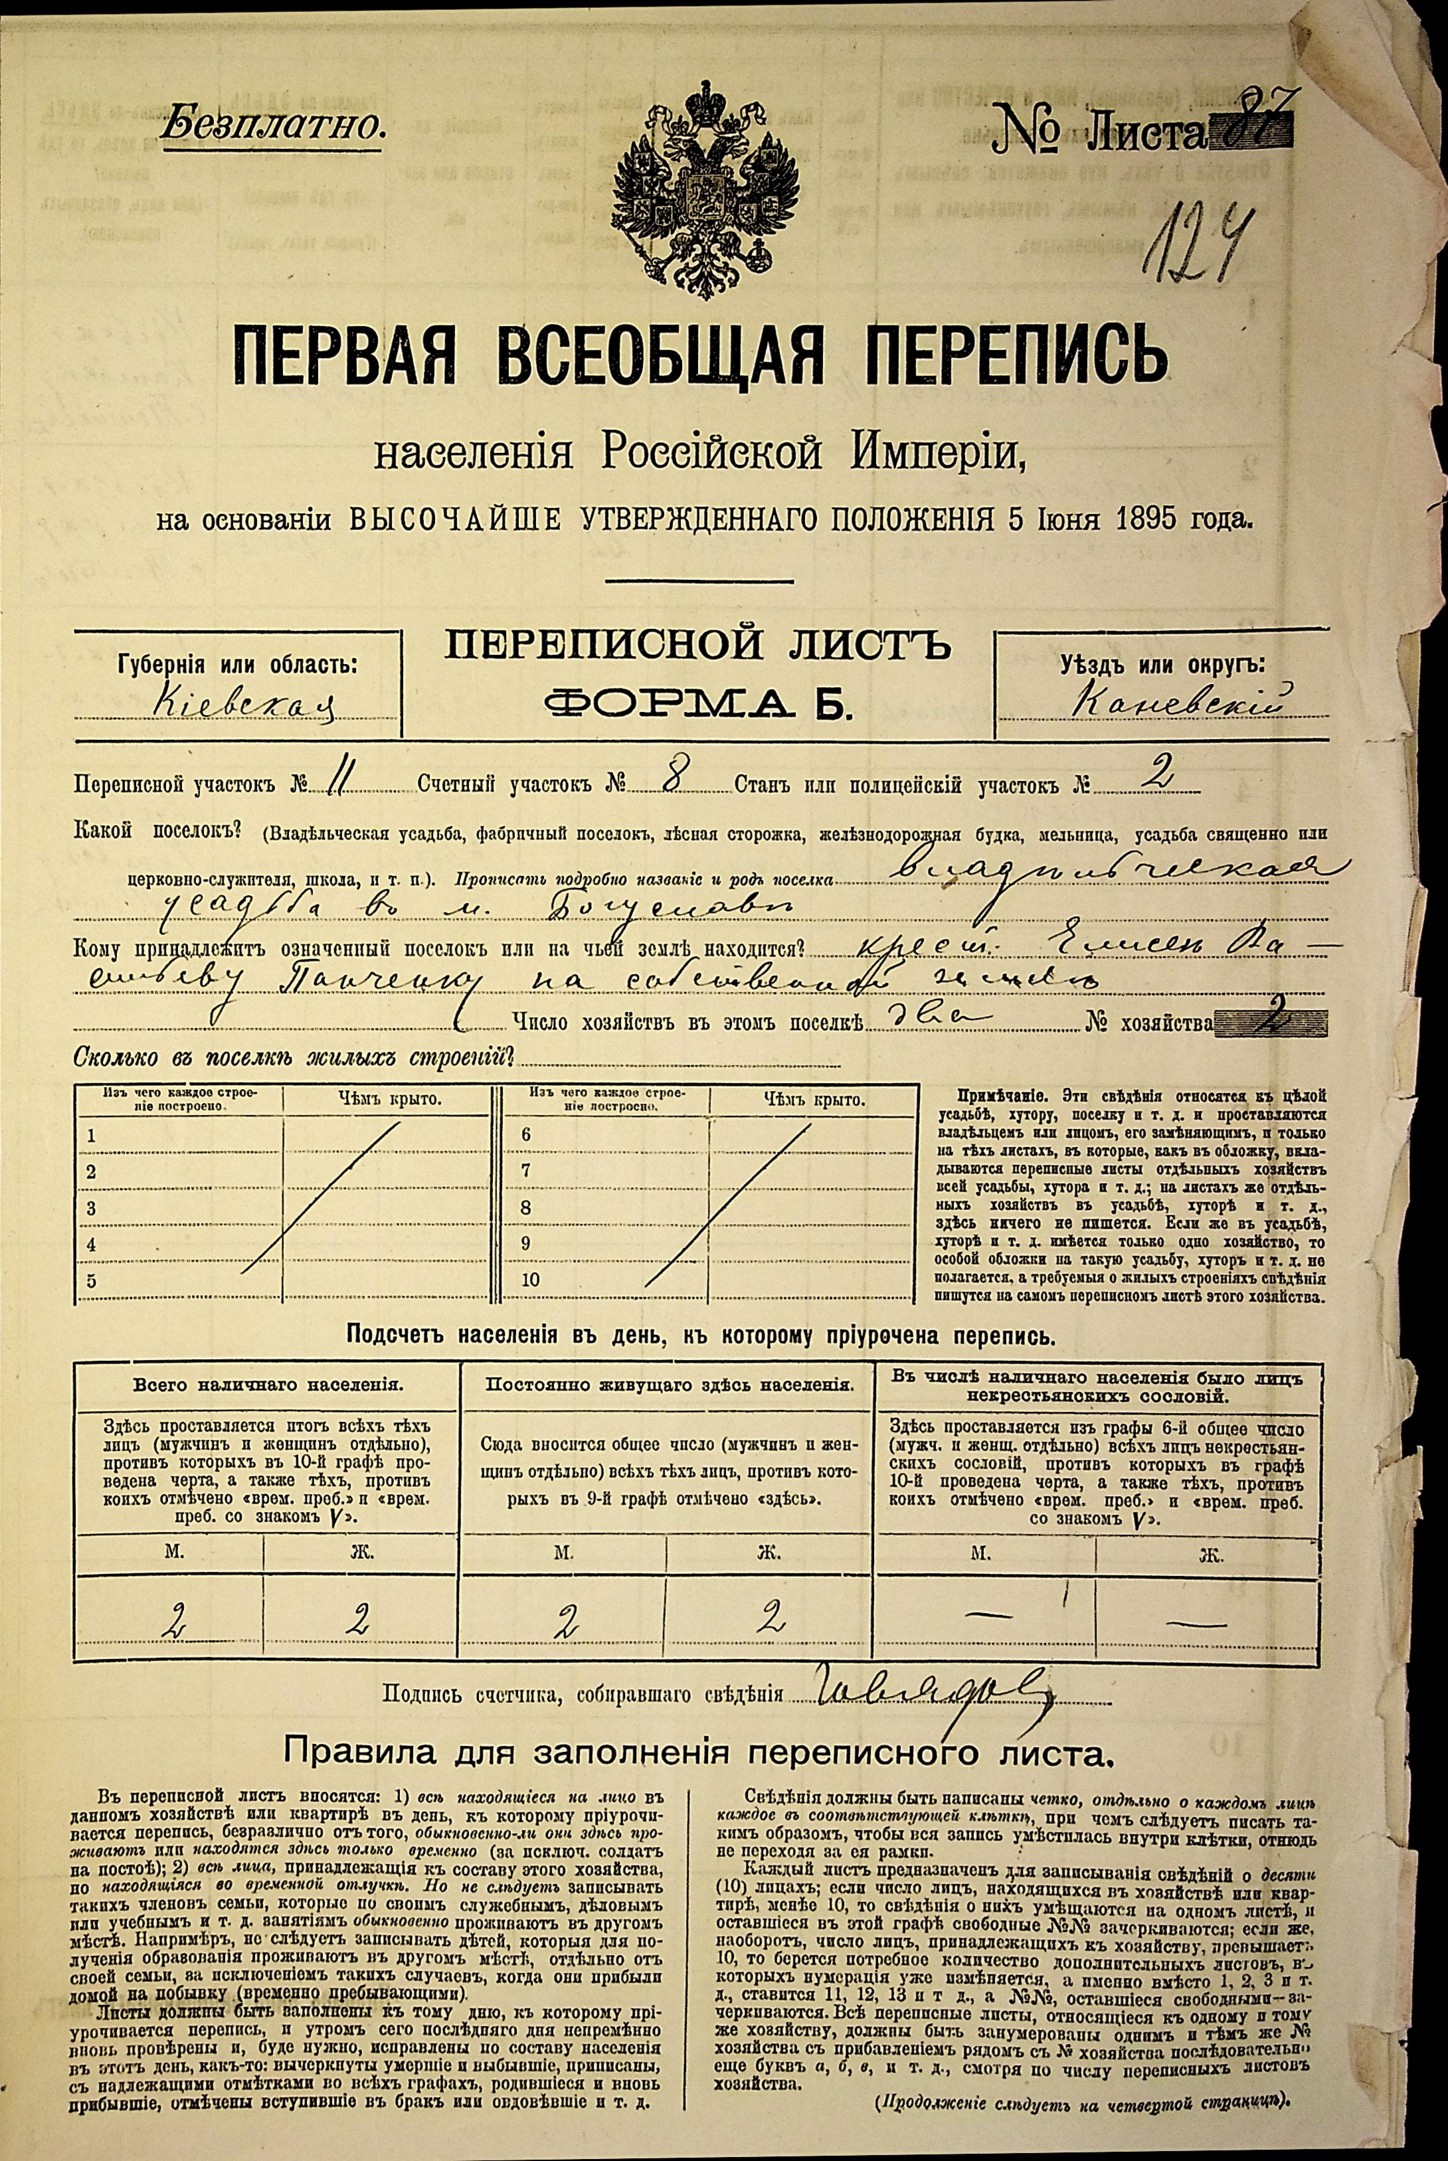 Безплатно.
№ Листа 87
124
ПЕРВАЯ ВСЕОБЩАЯ ПЕРЕПИСЬ
населенія Россійской Имперіи,
на основаніи ВЫСОЧАЙШЕ УТВЕРЖДЕННАГО ПОЛОЖЕНІЯ 5 Іюня 1895 года.
Губернія или область:
Кіевская
ПЕРЕПИСНОЙ ЛИСТЪ
ФОРМА Б.
Уѣздъ или округъ:
Каневскій
Переписной участокъ № 11 Счетный участокъ № 8 Станъ или полицейскій участокъ № 2
Какой поселокъ? (Владѣльческая усадьба, фабричный поселокъ, лѣсная сторожка, желѣзнодорожная будка, мельница, усадьба священно или
церковно-служителя, школа, и т. п.). Прописать подробно названіе и родъ поселка владѣльческая
усадьба въ м. Богуславѣ
Кому принадлежитъ означенный поселокъ или на чьей землѣ находится? крест. Елисею Ва-
сильеву Панченку на собственной землѣ
Число хозяйствъ въ этомъ поселкѣ два № хозяйства 2
Сколько въ поселкѣ жилыхъ строеній?
Изъ чего каждое строе-
ніе построено.
Чѣмъ крыто.
Изъ чего каждое строе-
ніе построено.
Чѣмъ крыто.
1
2
3
4
5
6
7
8
9
10
Примѣчаніе. Эти свѣдѣнія относятся къ цѣлой
усадьбѣ, хутору, поселку и т. д. и проставляются
владѣльцемъ или лицомъ, его замѣняющимъ, и только
на тѣхъ листахъ, въ которые, какъ въ обложку, вкла-
дываются переписные листы отдѣльныхъ хозяйствъ
всей усадьбы, хутора и т. д.; на листахъ же отдѣль-
ныхъ хозяйствъ въ усадьбѣ, хуторѣ и т. д.,
здѣсь ничего не пишется. Если же въ усадьбѣ,
хуторѣ и т. д. имѣется только одно хозяйство, то
особой обложки на такую усадьбу, хуторъ и т. д. не
полагается, а требуемыя о жилыхъ строеніяхъ свѣдѣнія
пишутся на самомъ переписномъ листѣ этого хозяйства.
Подсчетъ населенія въ день, къ которому пріурочена перепись.
Всего наличнаго населенія.
Здѣсь проставляется итогъ всѣхъ тѣхъ
лицъ (мужчинъ и женщинъ отдѣльно),
противъ которыхъ въ 10-й графѣ про-
ведена черта, а также тѣхъ, противъ
коихъ отмѣчено «врем. преб.» и «врем.
преб. со знакомъ V».
Постоянно живущаго здѣсь населенія.
Сюда вносится общее число (мужчинъ и жен-
щинъ отдѣльно) всѣхъ тѣхъ лицъ, противъ кото-
рыхъ въ 9-й графѣ отмѣчено «здѣсь».
Въ числѣ наличнаго населенія было лицъ
некрестьянскихъ сословій.
Здѣсь проставляется изъ графы 6-й общее число
(мужч. и женщ. отдѣльно) всѣхъ лицъ некрестьян-
скихъ сословій, противъ которыхъ въ графѣ
10-й проведена черта, а также тѣхъ, противъ
коихъ отмѣчено «врем. преб.» и «врем. преб.
со знакомъ V».
М. Ж. М. Ж. М. Ж.
2 2 2 2 — —
Подпись счетчика, собиравшаго свѣдѣнія
Правила для заполненія переписного листа.
Въ переписной листъ вносятся: 1) всѣ находящіеся на лицо въ
данномъ хозяйствѣ или квартирѣ въ день, къ которому пріурочи-
вается перепись, безразлично отъ того, обыкновенно-ли они здѣсь про-
живаютъ или находятся здѣсь только временно (за исключ. солдатъ
на постоѣ); 2) всѣ лица, принадлежащія къ составу этого хозяйства,
но находящіяся во временной отлучкѣ. Но не слѣдуетъ записывать
такихъ членовъ семьи, которые по своимъ служебнымъ, дѣловымъ
или учебнымъ и т. д. занятіямъ обыкновенно проживаютъ въ другомъ
мѣстѣ. Напримѣръ, не слѣдуетъ записывать дѣтей, которыя для по-
лученія образованія проживаютъ въ другомъ мѣстѣ, отдѣльно отъ
своей семьи, за исключеніемъ такихъ случаевъ, когда они прибыли
домой на побывку (временно пребывающими).
Листы должны быть заполнены къ тому дню, къ которому прі-
урочивается перепись, и утромъ сего послѣдняго дня непремѣнно
вновь провѣрены и, буде нужно, исправлены по составу населенія
въ этотъ день, какъ-то: вычеркнуты умершіе и выбывшіе, приписаны,
съ надлежащими отмѣтками во всѣхъ графахъ, родившіеся и вновь
прибывшіе, отмѣчены вступившіе въ бракъ или овдовѣвшіе и т. д.
Свѣдѣнія должны быть написаны четко, отдѣльно о каждомъ лицѣ
каждое въ соотвѣтствующей клѣткѣ, при чемъ слѣдуетъ писать та-
кимъ образомъ, чтобы вся запись умѣстилась внутри клѣтки, отнюдь
не переходя за ея рамки.
Каждый листъ предназначенъ для записыванія свѣдѣній о десяти
(10) лицахъ; если число лицъ, находящихся въ хозяйствѣ или квар-
тирѣ, менѣе 10, то свѣдѣнія о нихъ умѣщаются на одномъ листѣ, и
оставшіеся въ этой графѣ свободные №№ зачеркиваются; если же,
наоборотъ, число лицъ, принадлежащихъ къ хозяйству, превышаетъ
10, то берется потребное количество дополнительныхъ листовъ, въ
которыхъ нумерація уже измѣняется, а именно вмѣсто 1, 2, 3 и т.
д., ставится 11, 12, 13 и т д., а №№, оставшіеся свободными—за-
черкиваются. Всѣ переписные листы, относящіеся къ одному и тому
же хозяйству, должны быть занумерованы однимъ и тѣмъ же №
хозяйства съ прибавленіемъ рядомъ съ № хозяйства послѣдовательно
еще буквъ а, б, в, и т. д., смотря по числу переписныхъ листовъ
хозяйства.
(Продолженіе слѣдуетъ на четвертой страницѣ).